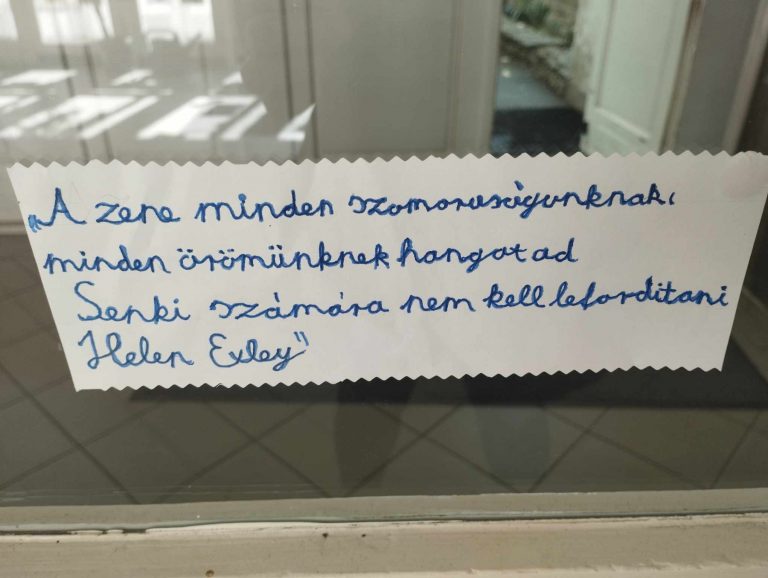 „A zene minden szomoruságunknak,
minden örömünknek hangot ad
Senki számára nem kell lefordítani
Helen Exley"